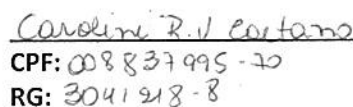 Caroline R. d Caetano
CPF: 008837995-70
RG: 3041218-8